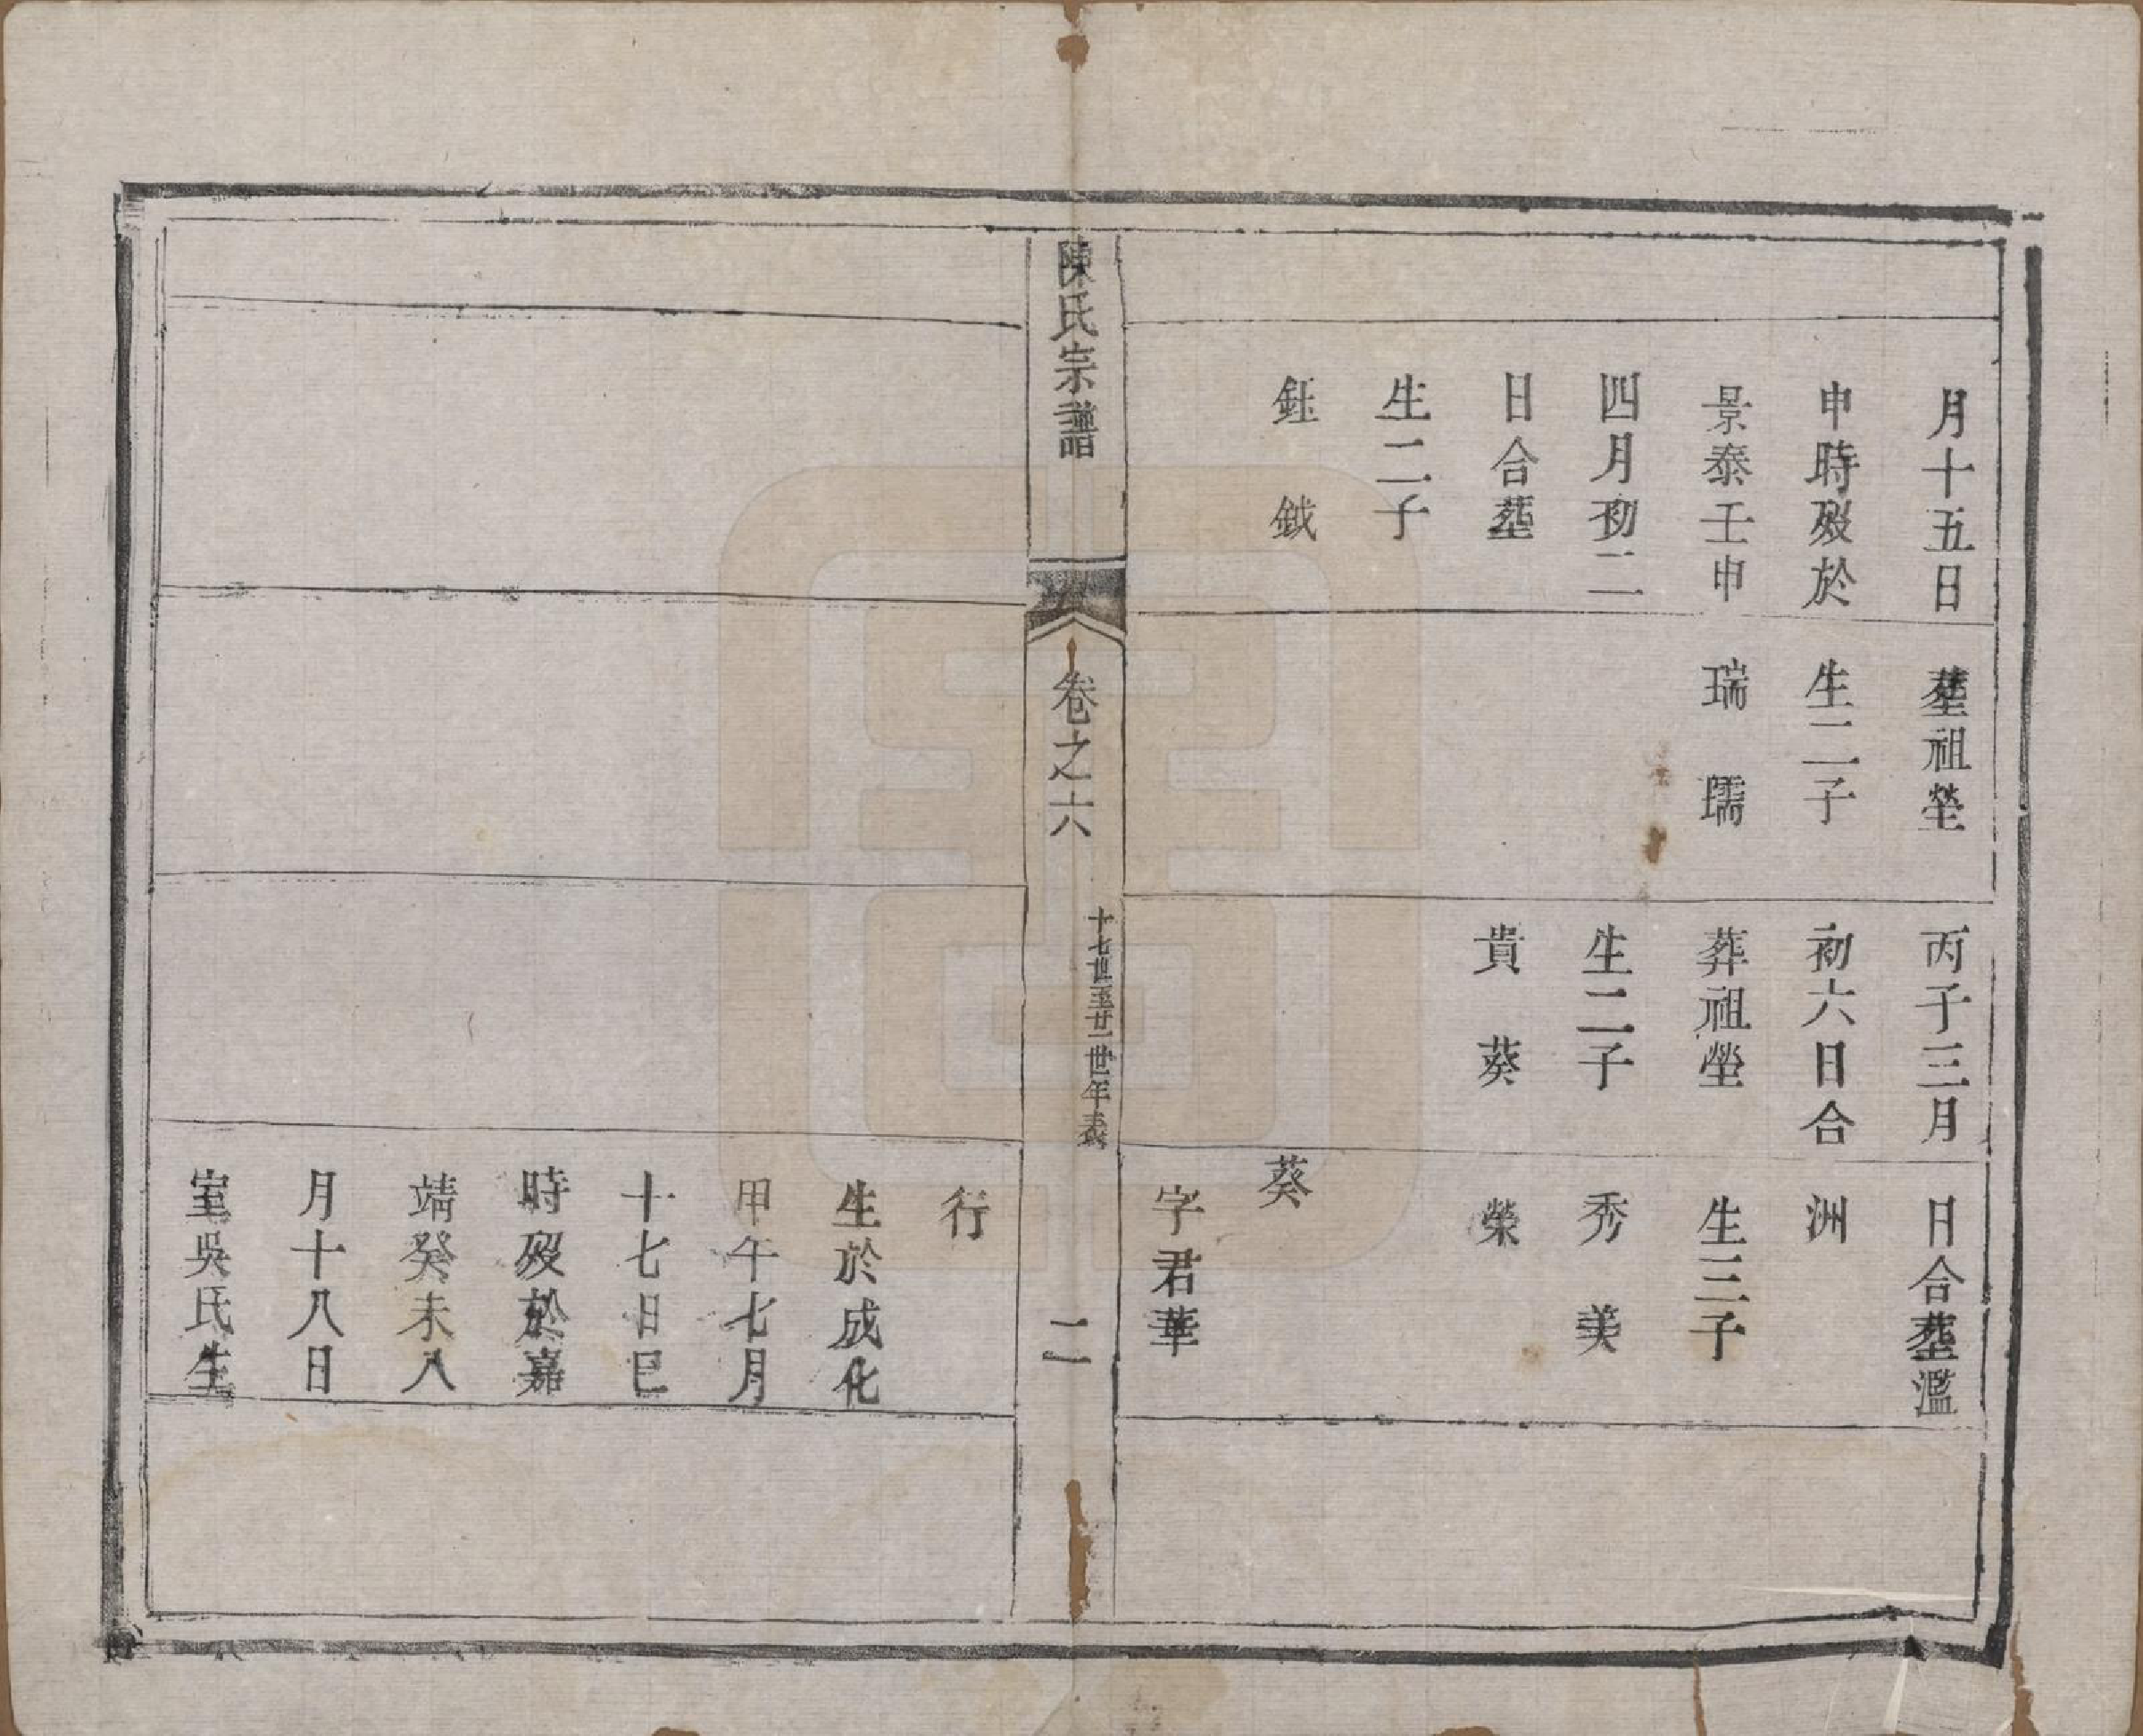 月十五日
申時殁於
景泰壬申
四月初二
日合塟
生二子
鈺　鉞
塟祖塋
生二子
瑞　瓀
丙子三月
初六日合
葬祖塋
生二子
貴　葵
日合塟濫
洲
生三子
秀　美
榮
葵
字君華
陳氏宗譜
卷之六
十七世至廿一世年表
二
行
生於成化
甲午七月
十七日巳
時殁於嘉
靖癸未八
月十八日
室吳氏生